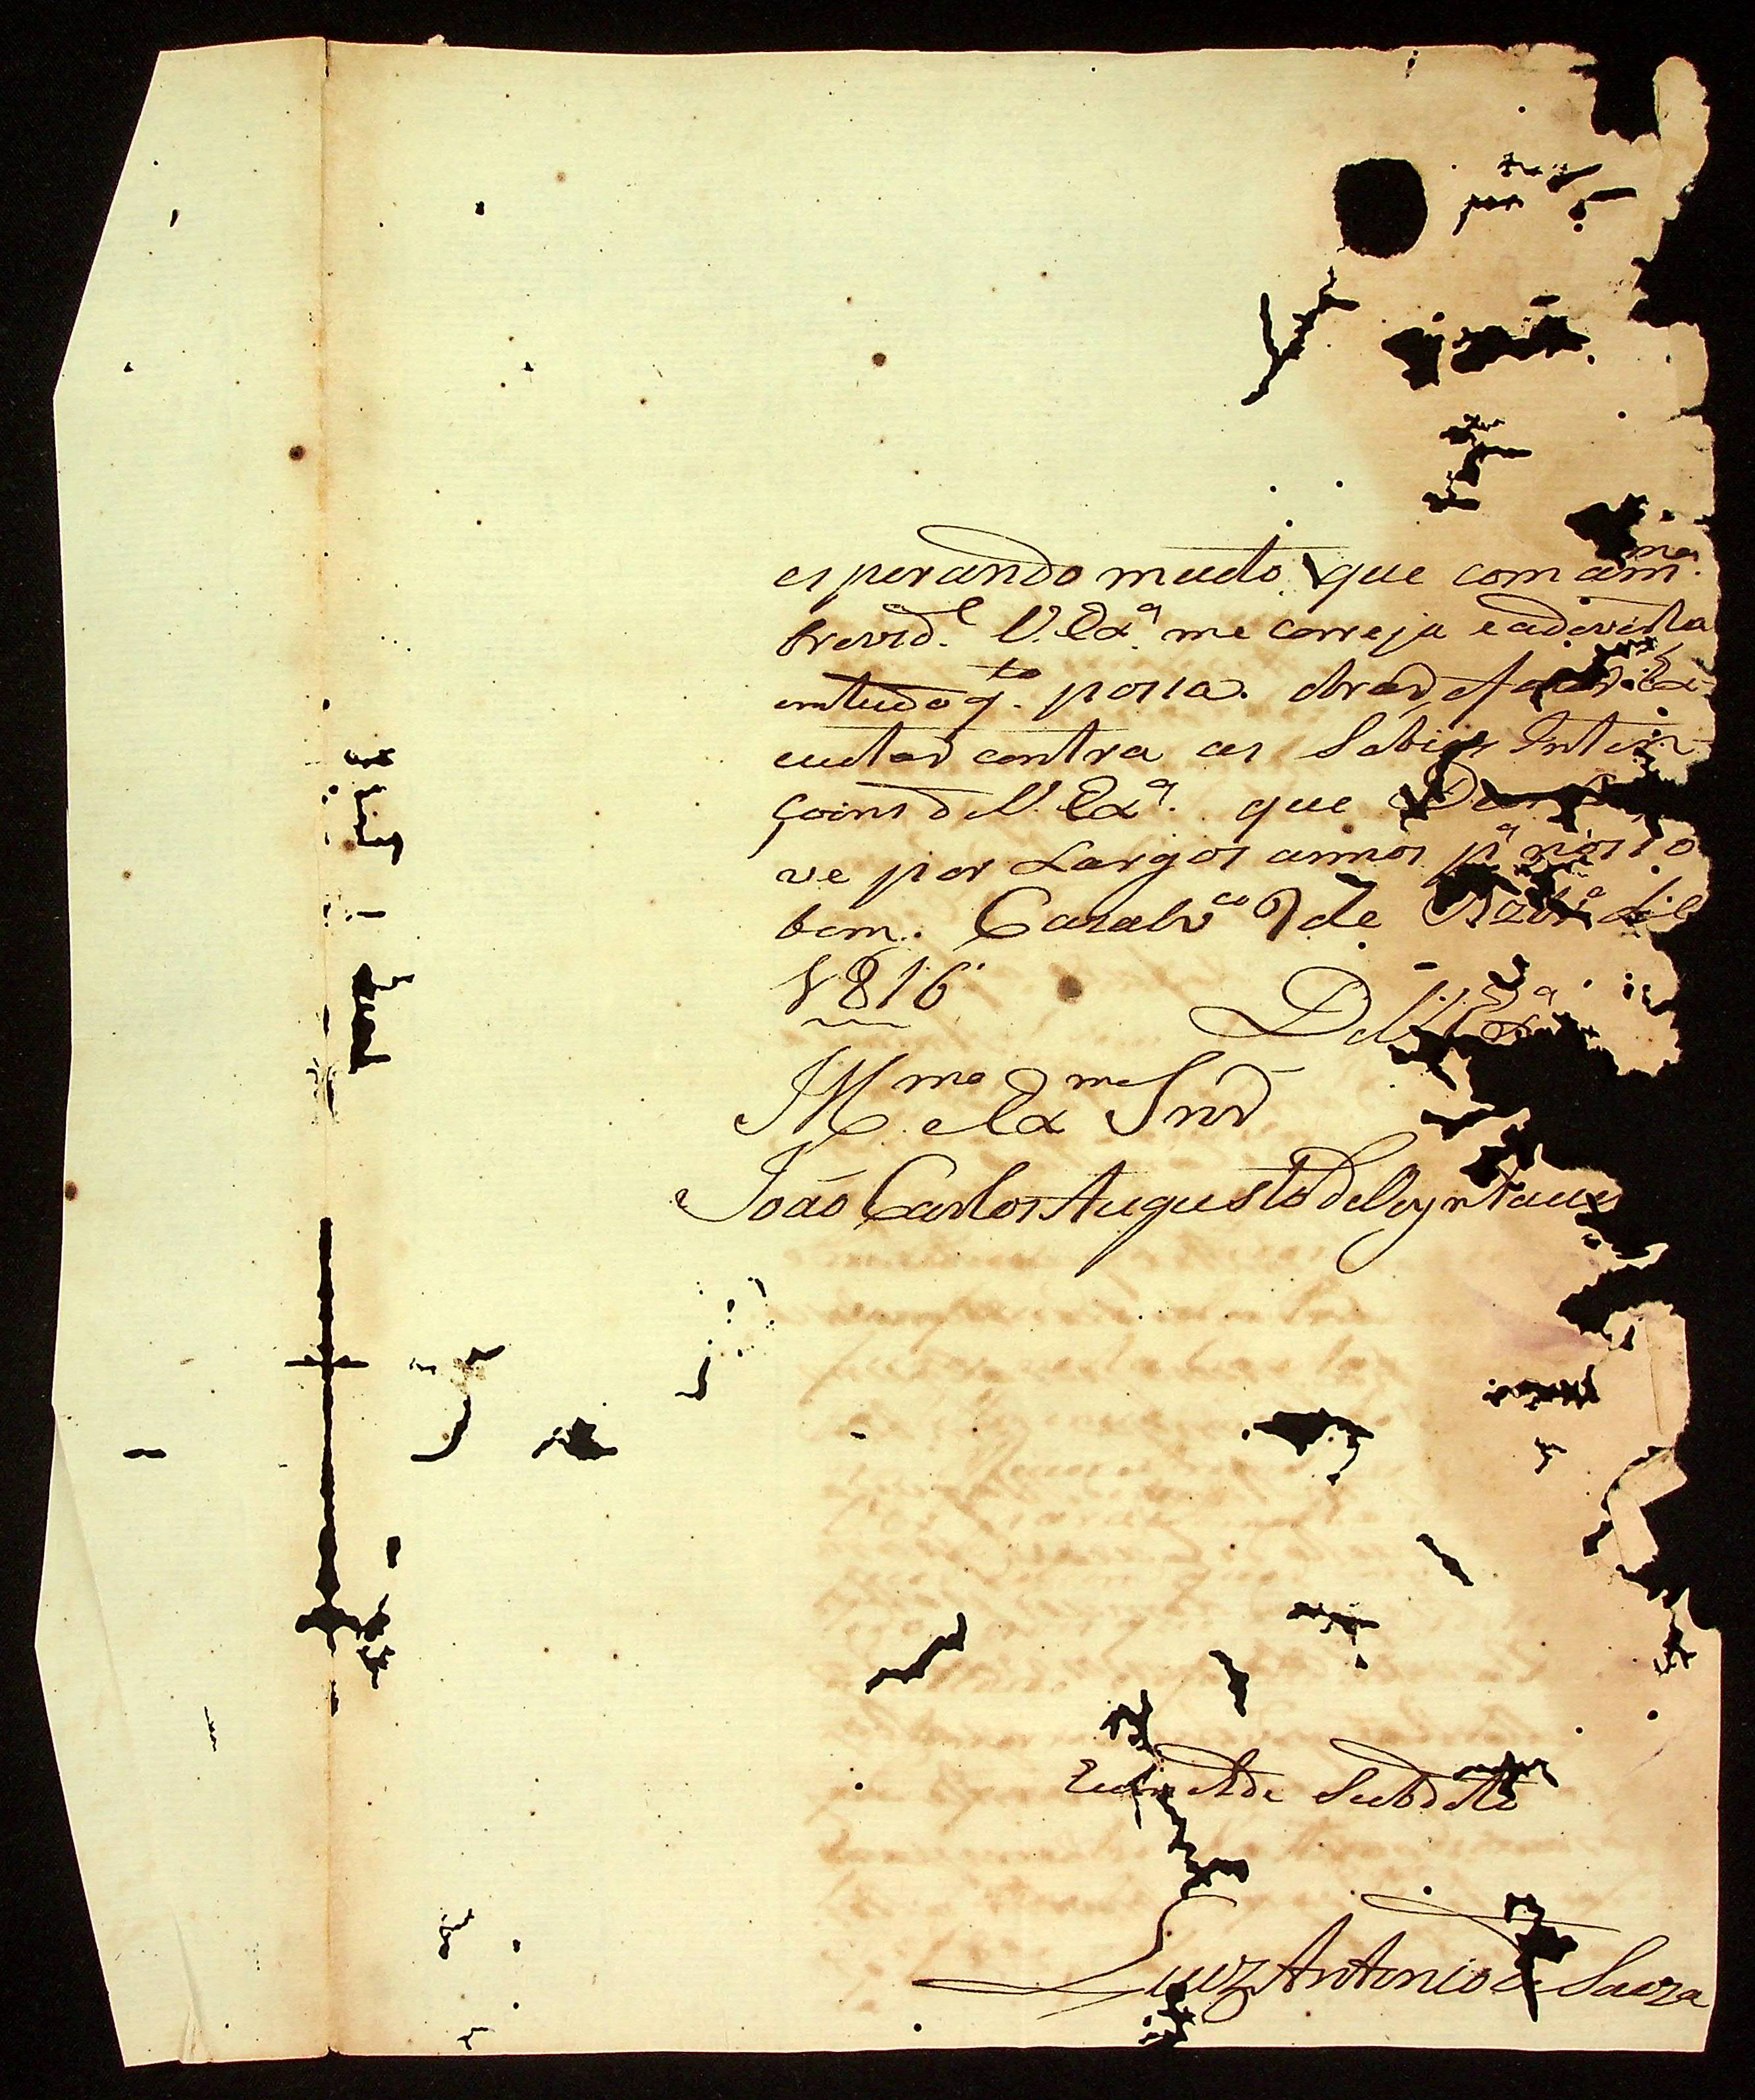 esperando muito que com a m.ma
brevid.e V. Exa. me correja e advirta
em tudo q.to possa obrar, Ex-
cutar contra as Sabias Inten-
çoins de V. Exa. que
ve por Largos annos p.a nosso
bem. 7 de de
1816
De V. Exa.
Ill.mo e Ex.mo Snr
João Carlos Augusto de Oeyntaus
Subdito
Luiz Antonio de Souza